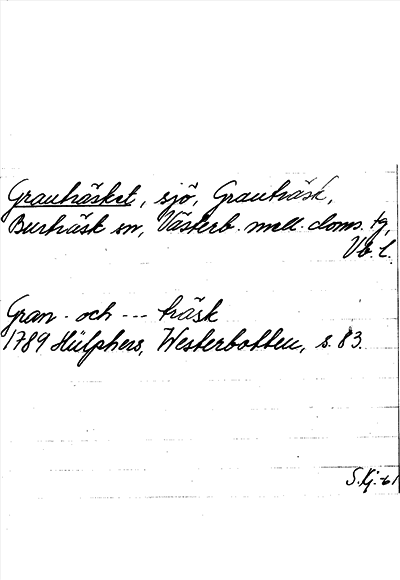 Granträsket, sjö, Granträsk,
Burträsk sn, Västerb. mell. doms. tg,
Vb. l.
Gran- och --- träsk
1789 Hülphers, Westerbotten, s. 83.
S. Kj. -61